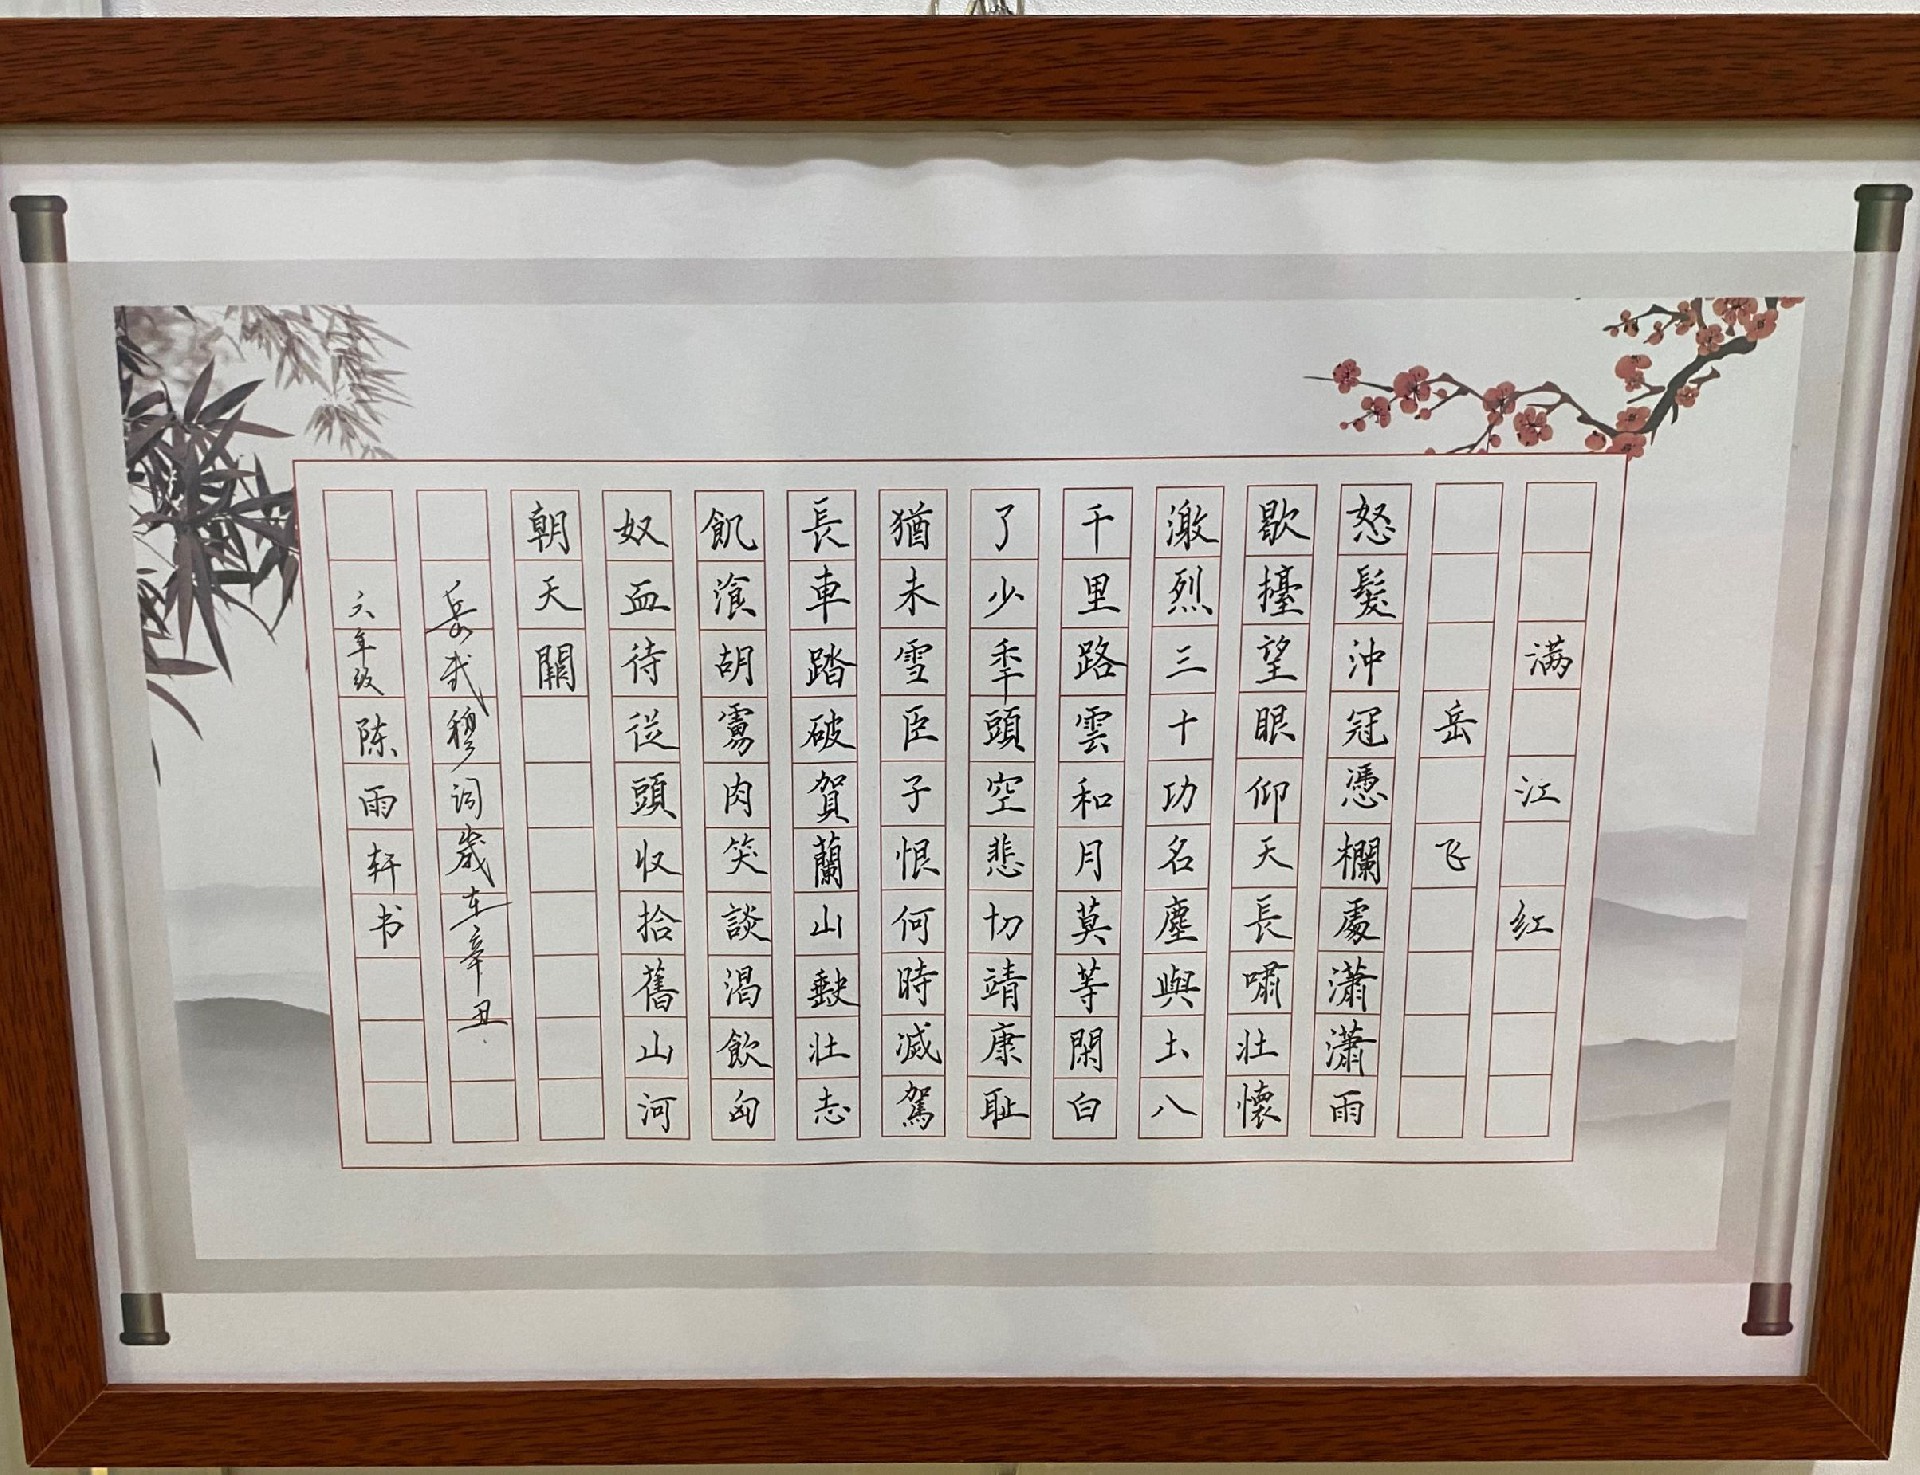 满江红
岳飞
怒髮沖冠憑欄處瀟瀟雨
歇擡望眼仰天長嘯壯懷
激烈三十功名塵與土八
千里路雲和月莫等閑白
了少秊頭空悲切靖康耻
猶未雪臣子恨何時滅駕
長車踏破賀蘭山缺壯志
飢湌胡虜肉笑談渴飲匈
奴血待從頭收拾舊山河
朝天闕
岳武穆词歲在辛丑
六年级陈雨轩书